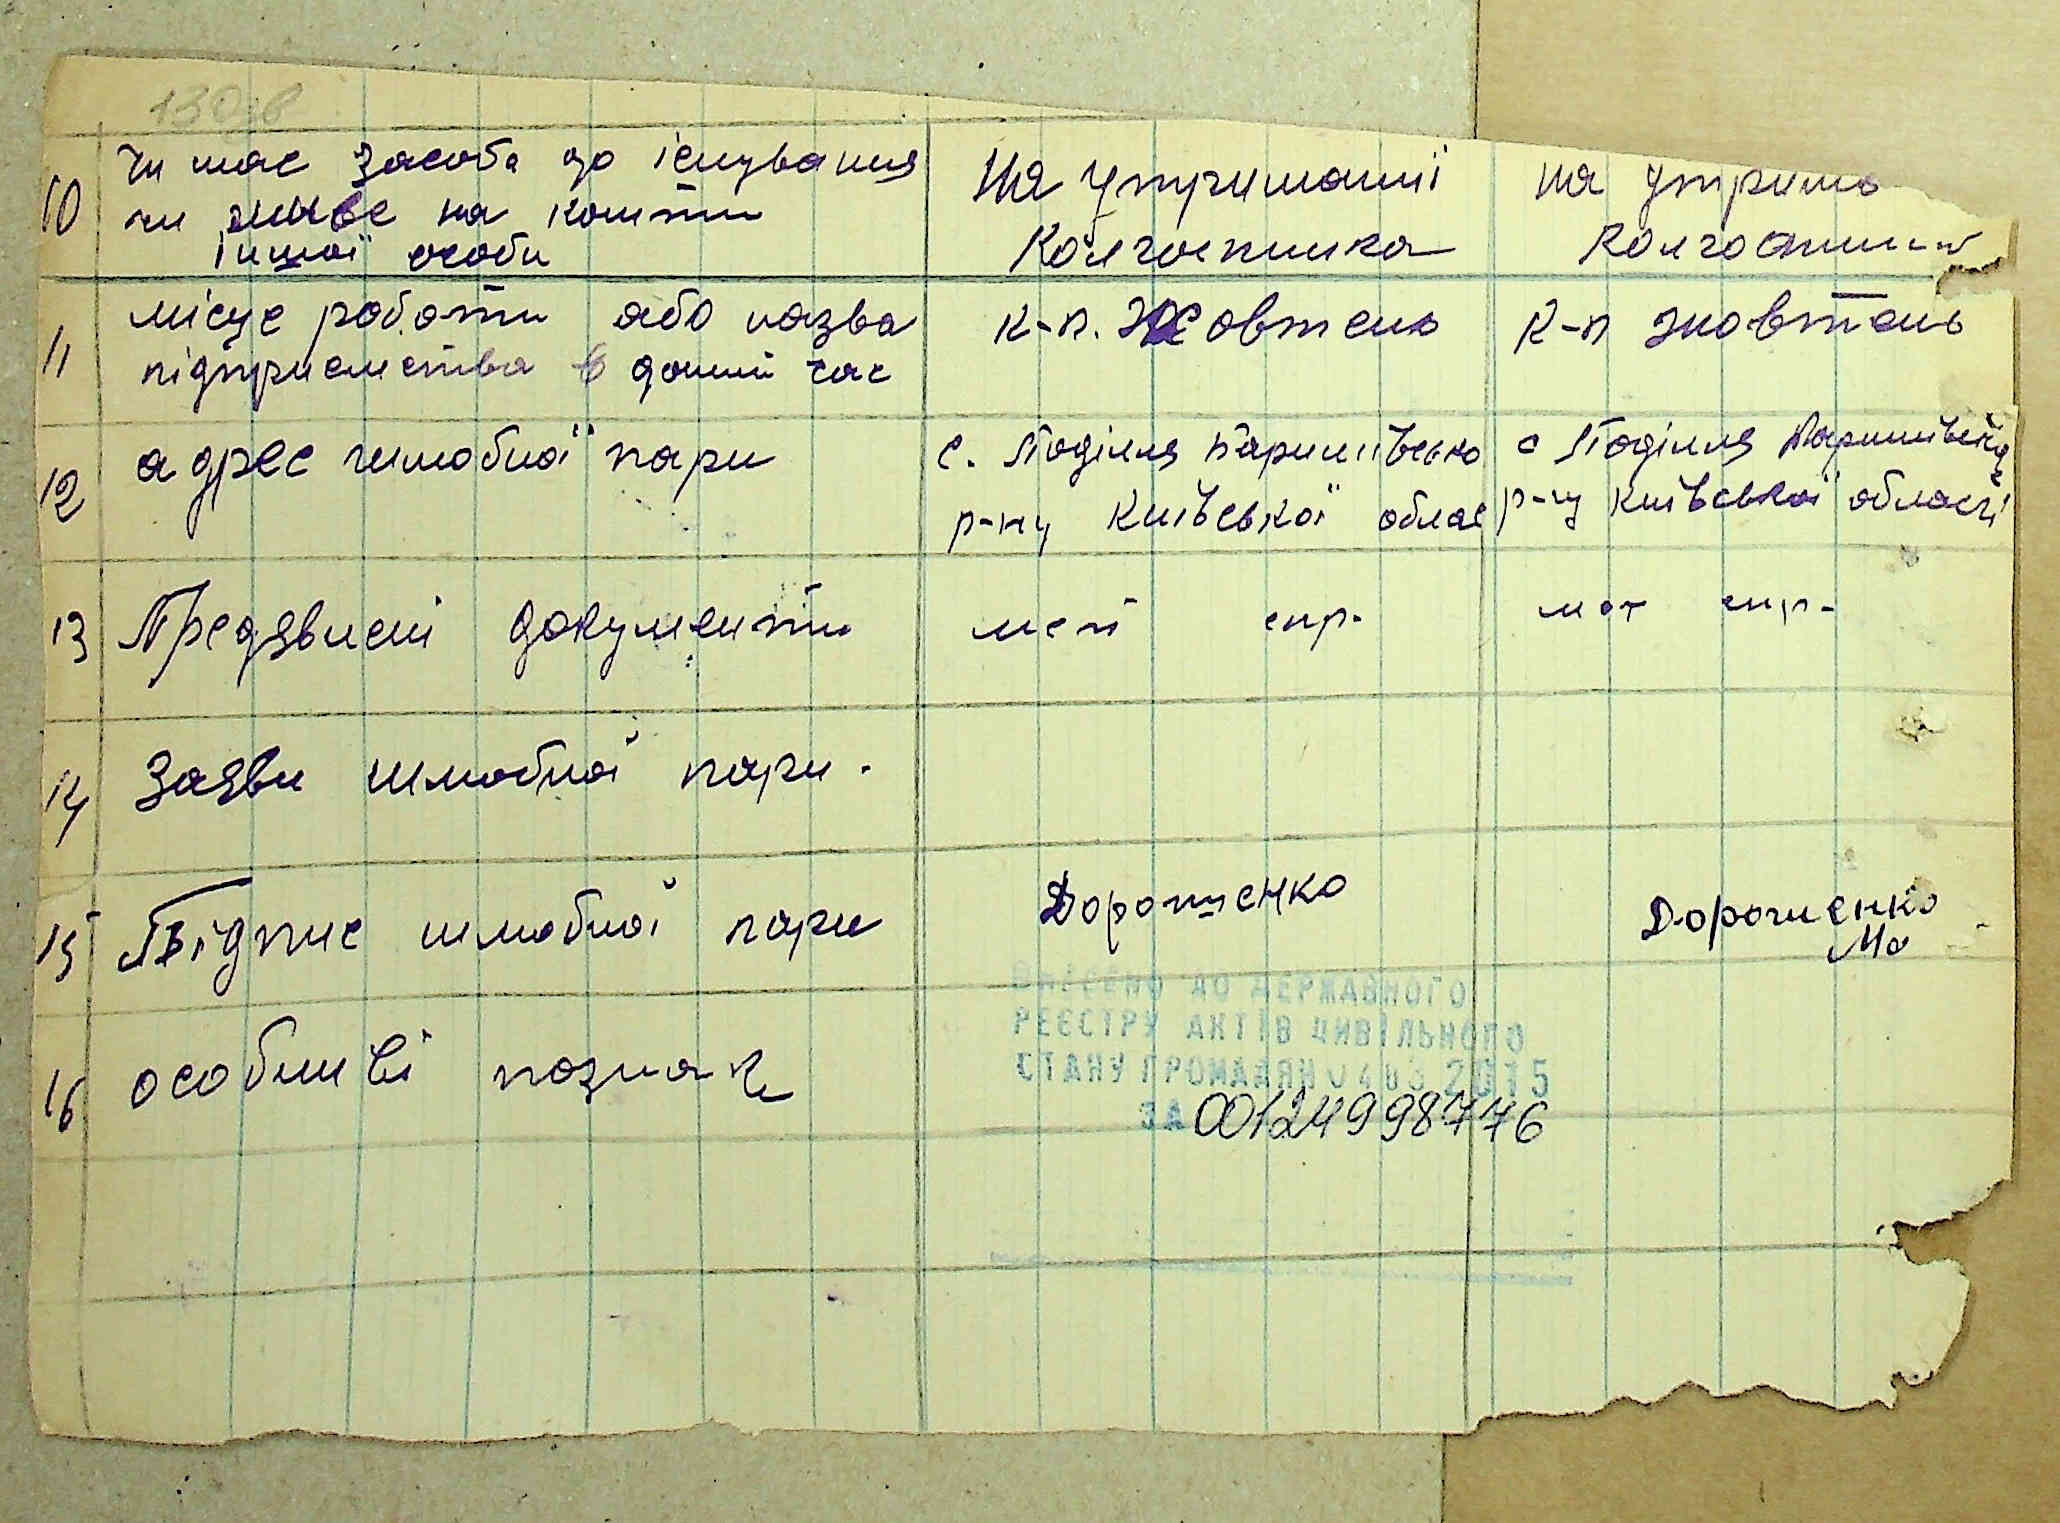 130зв
10 Чи має засоба до існування На утриманні на утрима
чи живе на кошти Колгоспника Колгоспник
іншої особи
11 місце роботи або назва к-п. Жовтень к-п Жовтень
підприємства в даний час
12 адрес шлюбної пари с. Поділля Баришівсько с Поділля Баришівськ
р-ну Київської облас р-ну Київської області
13 Предявлені документи мет спр. мет спр.
14 Заяви шлюбної пари.
15 Підпис шлюбної пари Дорошенко Дорошенко
16 особливі познаки
ВНЕСЕНО ДО ДЕРЖАВНОГО
РЕЄСТРУ АКТІВ ЦИВІЛЬНОГО
СТАНУ ГРОМАДЯН 04 03 2015
ЗА 00124998776